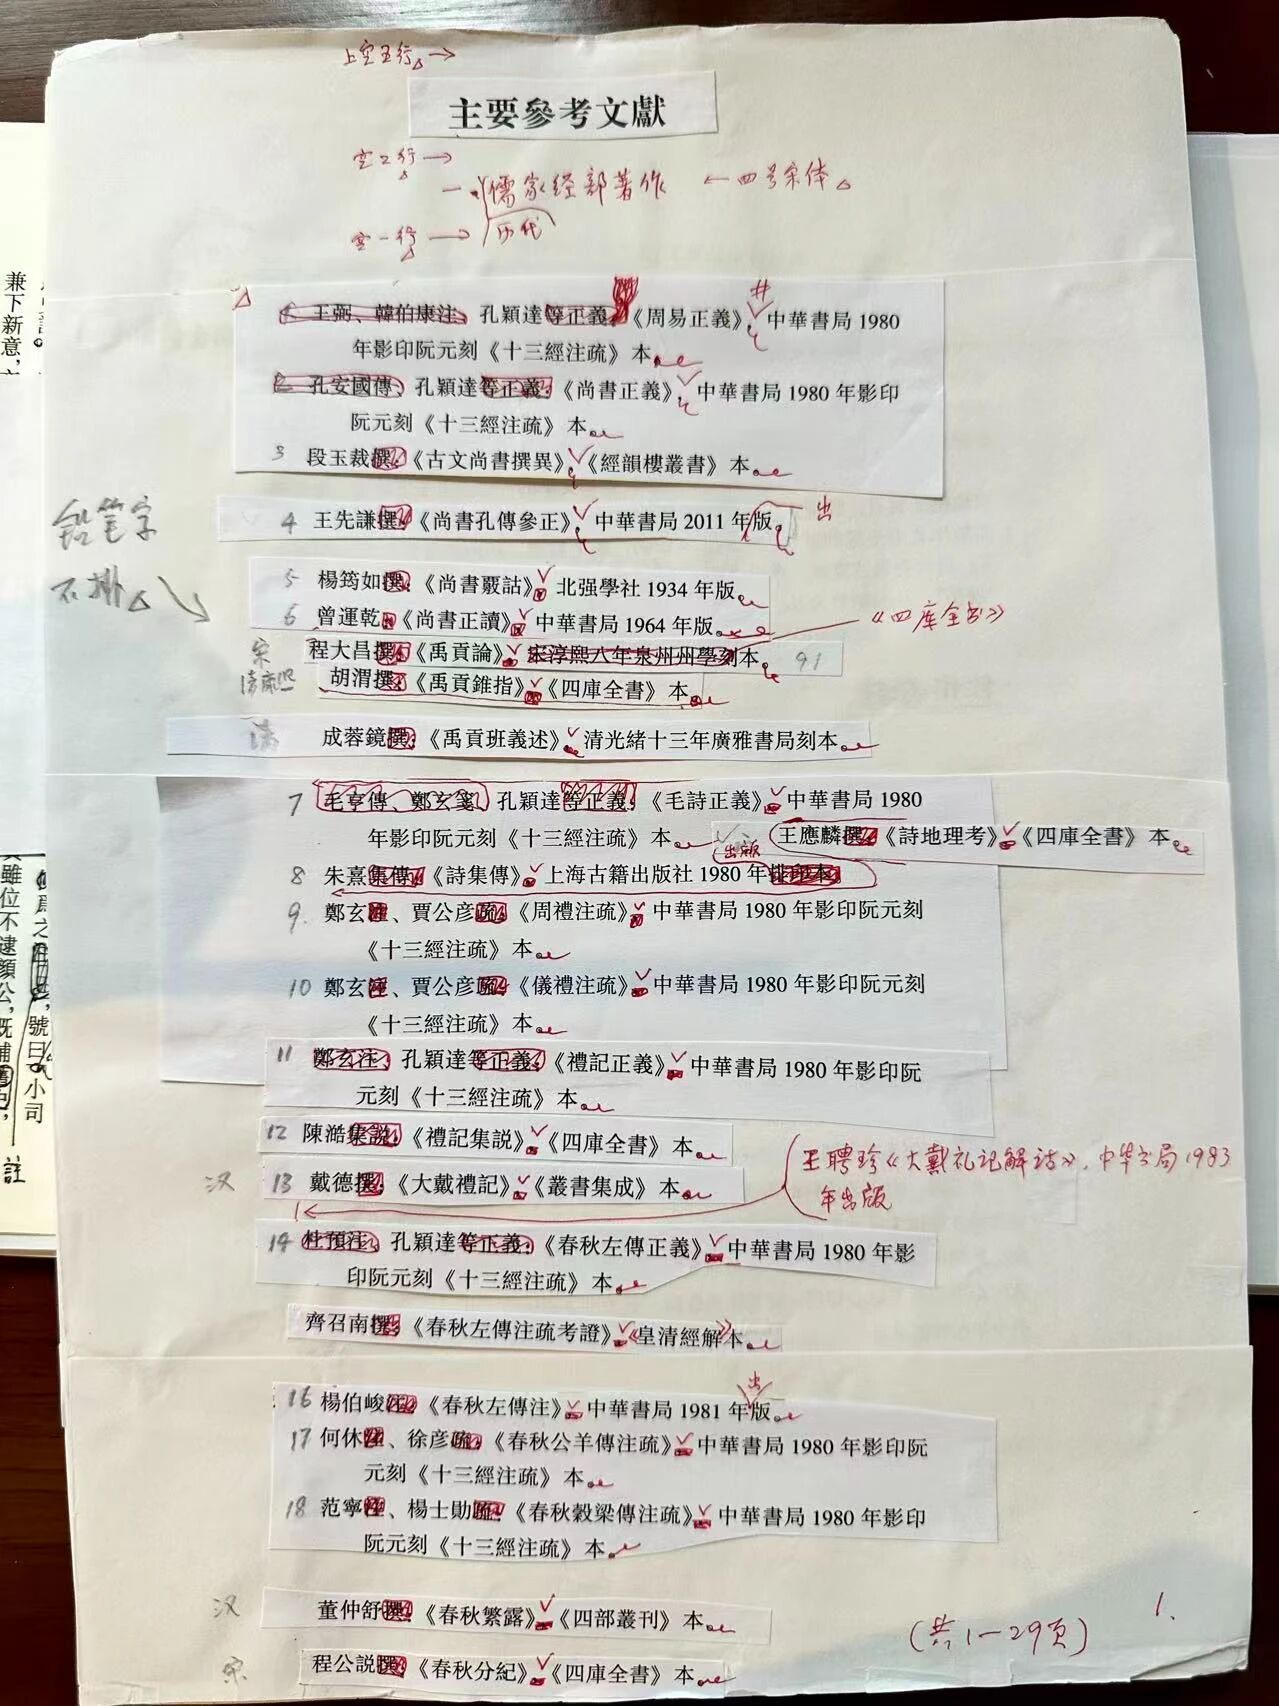 上空五行→
主要參考文獻
空2行→
一.儒家经部著作 ←四号宋体
空一行→ 历代
王弼、韓伯康注、孔穎達等正義:《周易正義》,中華書局1980
年影印阮元刻《十三經注疏》本。
2 孔安國傳、孔穎達等正義:《尚書正義》,中華書局1980年影印
阮元刻《十三經注疏》本。
3 段玉裁撰:《古文尚書撰異》,《經韻樓叢書》本。
4 王先謙撰:《尚書孔傳參正》,中華書局2011年版。 出
铅笔字
不排
5 楊筠如撰:《尚書覈詁》 北强學社1934年版。
6 曾運乾 《尚書正讀》 中華書局1964年版。
《四库全书》
宋 程大昌撰:《禹貢論》 宋淳熙八年泉州州學刻本。 91
清康熙 胡渭撰:《禹貢錐指》《四庫全書》本。
清 成蓉鏡撰:《禹貢班義述》 清光緒十三年廣雅書局刻本。
7 毛亨傳、鄭玄箋、孔穎達等正義:《毛詩正義》 中華書局1980
年影印阮元刻《十三經注疏》本。
王應麟撰:《詩地理考》《四庫全書》本。
出版
8 朱熹集傳:《詩集傳》 上海古籍出版社1980年排印本。
9. 鄭玄注、賈公彦疏:《周禮注疏》 中華書局1980年影印阮元刻
《十三經注疏》本。
10 鄭玄注、賈公彦疏:《儀禮注疏》 中華書局1980年影印阮元刻
《十三經注疏》本。
11 鄭玄注、孔穎達等正義:《禮記正義》 中華書局1980年影印阮
元刻《十三經注疏》本。
12 陳澔集説:《禮記集説》《四庫全書》本。
王聘珍《大戴礼记解诂》,中华书局1983
年出版
汉 13 戴德撰:《大戴禮記》《叢書集成》本。
14 杜預注、孔穎達等正義:《春秋左傳正義》 中華書局1980年影
印阮元刻《十三經注疏》本。
齊召南撰:《春秋左傳注疏考證》《皇清經解》本。
出
16 楊伯峻注:《春秋左傳注》 中華書局1981年版。
17 何休注、徐彦疏:《春秋公羊傳注疏》 中華書局1980年影印阮
元刻《十三經注疏》本。
18 范寧注、楊士勛疏:《春秋穀梁傳注疏》 中華書局1980年影印
阮元刻《十三經注疏》本。
汉 董仲舒撰:《春秋繁露》《四部叢刊》本。
(共1—29页) 1.
宋 程公説撰:《春秋分紀》《四庫全書》本。
兼下新意,
雖位不逮顔公,既
號曰小司
註